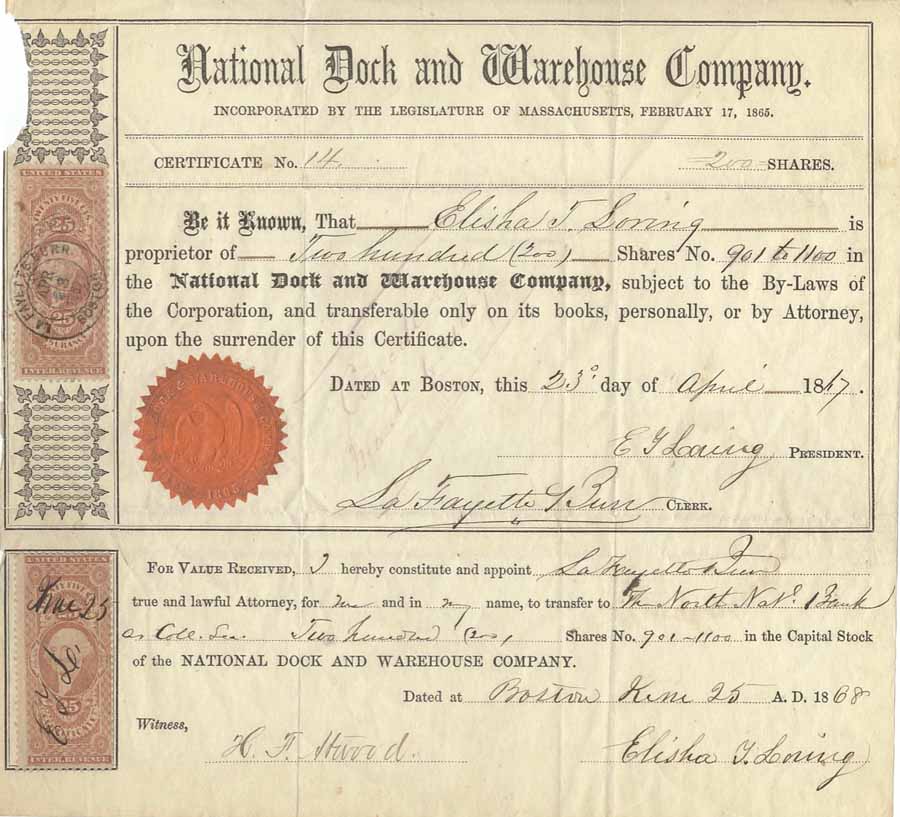 National Dock and Warehouse Company.
INCORPORATED BY THE LEGISLATURE OF MASSACHUSETTS, FEBRUARY 17, 1865.
CERTIFICATE No. 14. 200 SHARES.
Be it Known, That Elisha T. Loring is
proprietor of Two hundred (200) Shares No. 901 to 1100 in
the National Dock and Warehouse Company, subject to the By-Laws of
the Corporation, and transferable only on its books, personally, or by Attorney,
upon the surrender of this Certificate.
DATED AT BOSTON, this 23d day of April 1867.
E T Loring, PRESIDENT.
La Fayette Burr CLERK.
UNITED STATES
25
25
INTER. REVENUE
FOR VALUE RECEIVED, I hereby constitute and appoint La Fayette Burr
true and lawful Attorney, for me and in my name, to transfer to The North Nat. Bank
as Coll. Two hundred (200) Shares No. 901-1100 in the Capital Stock
of the NATIONAL DOCK AND WAREHOUSE COMPANY.
Dated at Boston June 25 A. D. 1868
Witness,
H. F. Atwood. Elisha T. Loring
UNITED STATES
June 25
25
INTER. REVENUE